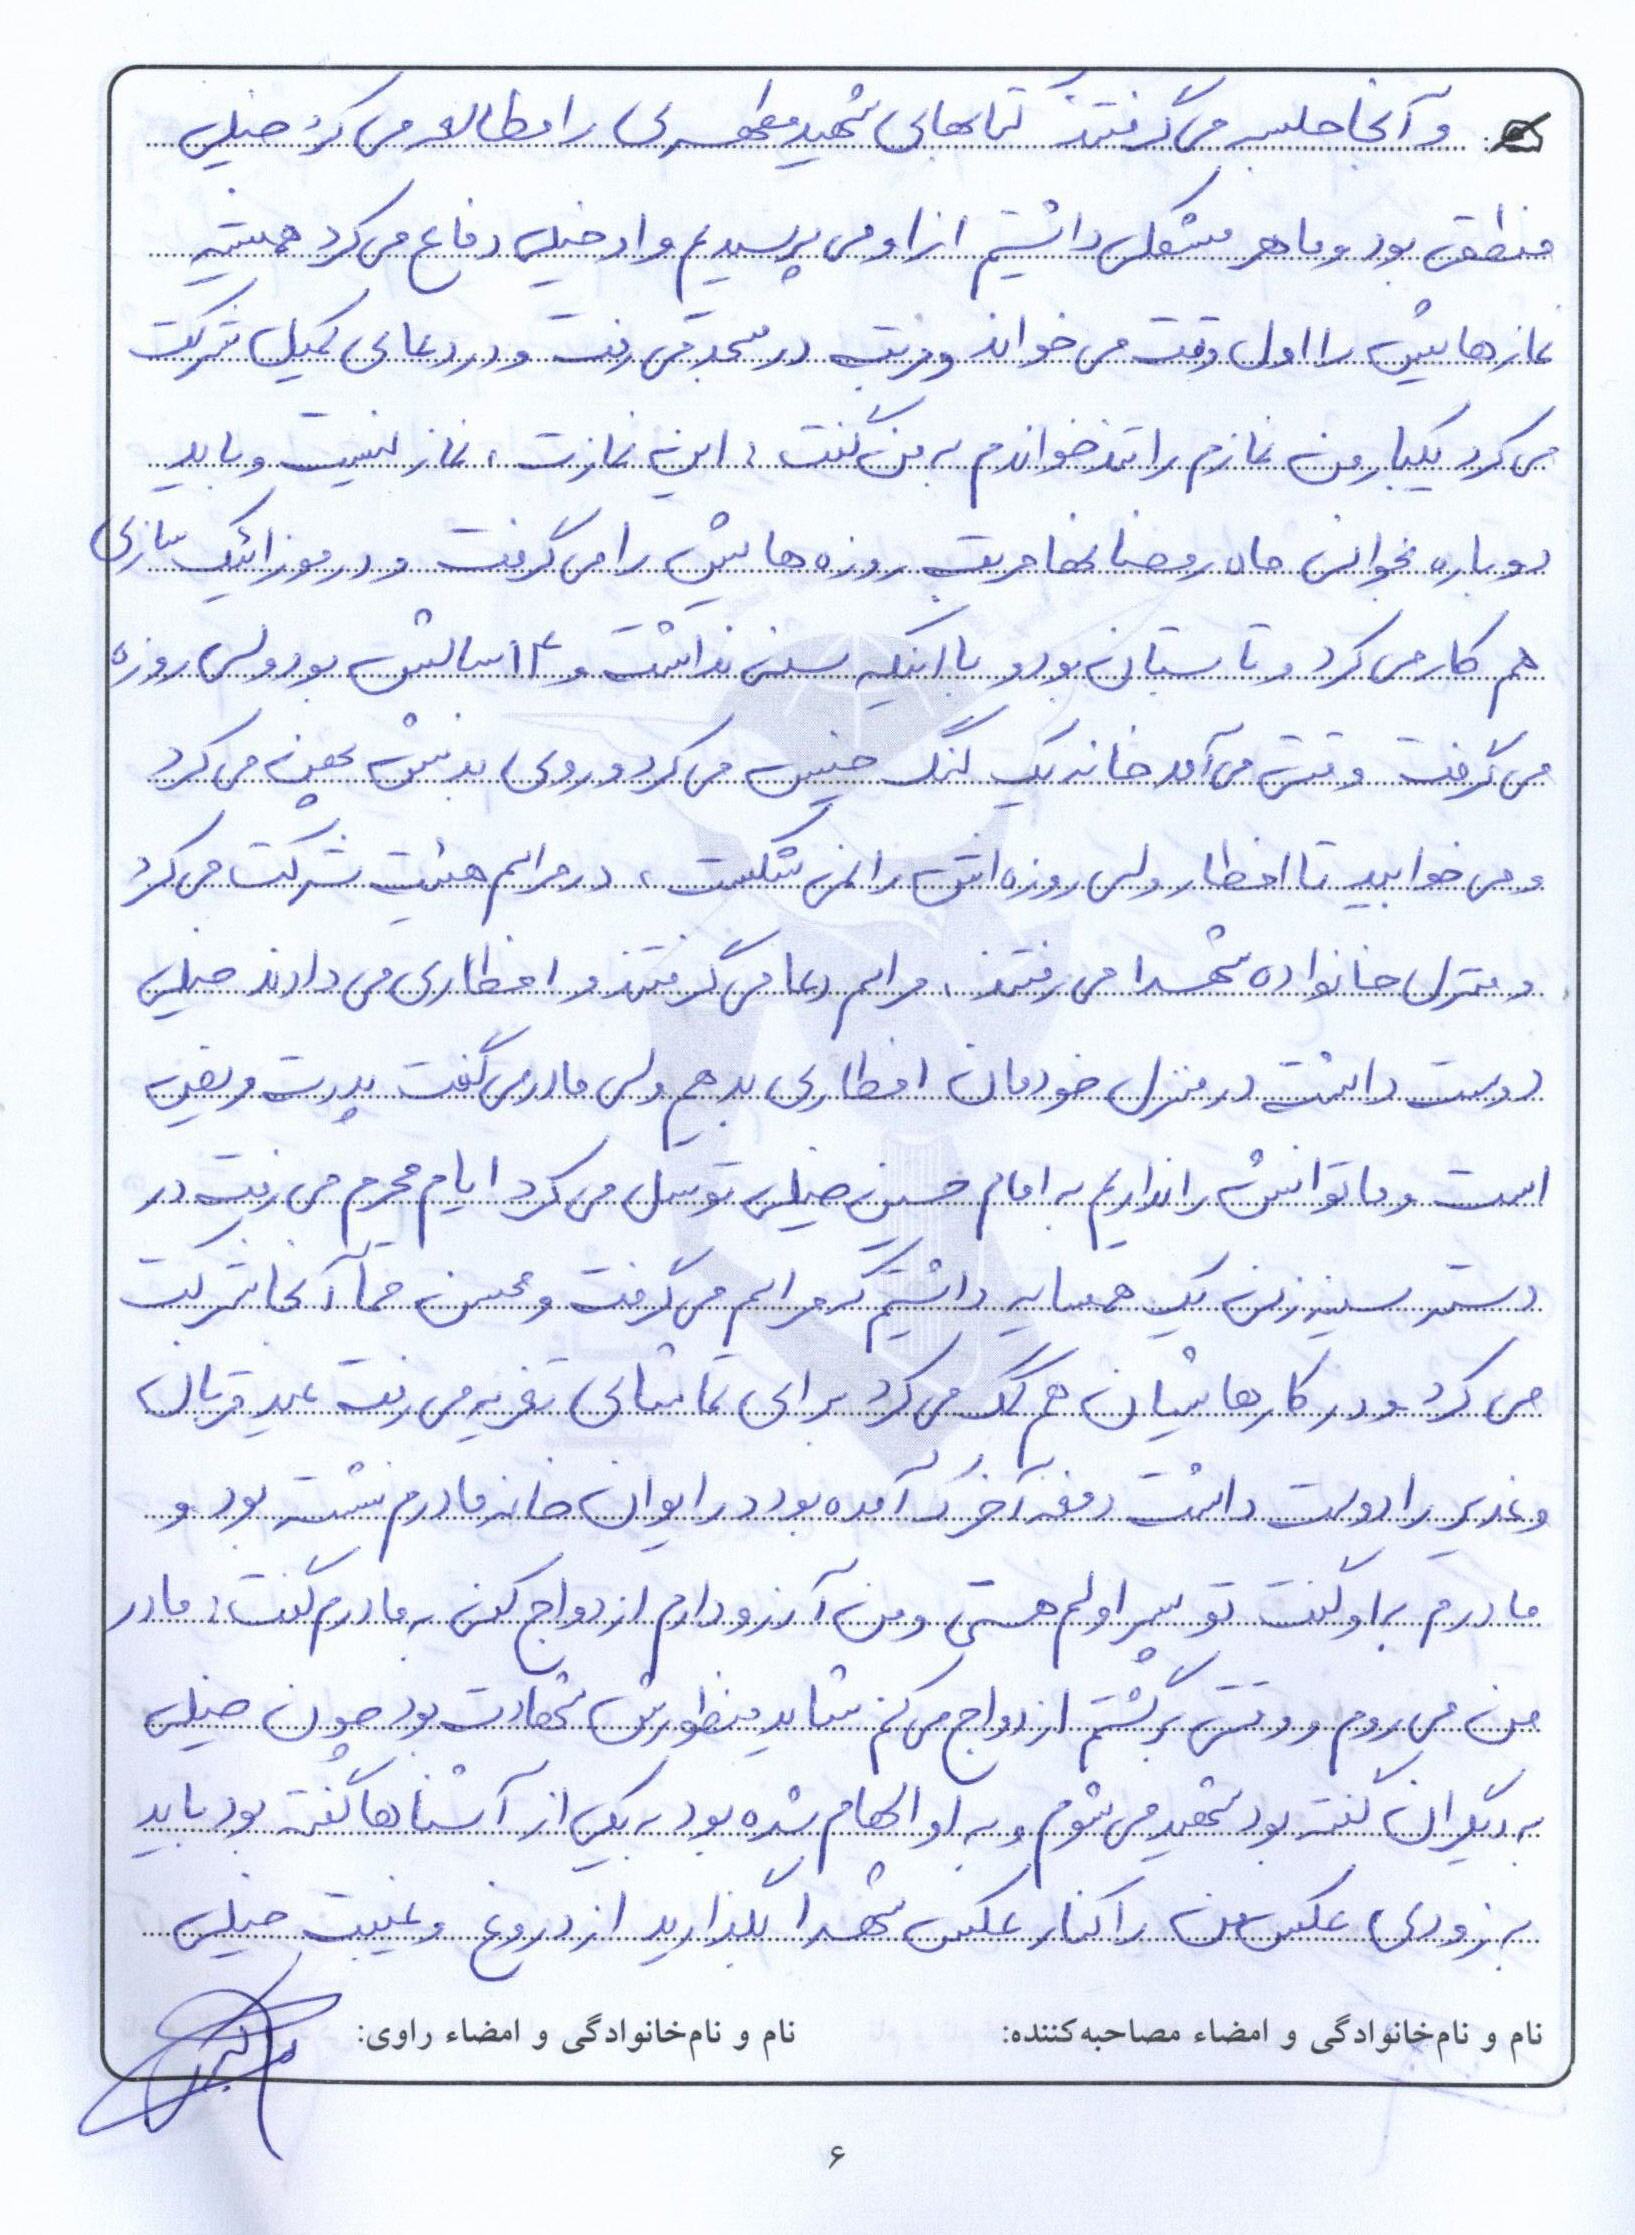 و آنجا جلسه می گرفتند کتابهای شهید مطهری را مطالعه می کرد خیلی
منطقی بود و ما هر مشکلی داشتیم از او می پرسیدیم و او خیلی دفاع می کرد همیشه
نمازهایش را اول وقت می خواند و مرتب در مسجد می رفت و در دعای کمیل شرکت
می کرد یکبار من نمازم را تند خواندم به من گفت : این نمازت ، نماز نیست و باید
دوباره بخوانی ماه رمضانها مرتب روزه هایش را می گرفت و در موزائیک سازی
هم کار می کرد و تابستان بود و با اینکه سنی نداشت و ۱۴ سالش بود ولی روزه
می گرفت وقتی می آمد خانه یک لنگ خیس می کرد و روی بدنش پهن می کرد
و می خوابید تا افطار ولی روزه اش را نمی شکست ، در مراسم هیئت شرکت می کرد
و منزل خانواده شهدا می رفتند ، مراسم دعا می گرفتند و افطاری می دادند خیلی
دوست داشت در منزل خودمان افطاری بدهیم ولی مادرم می گفت پدرت مریض
است و ما توانش را نداریم به امام حسین خیلی توسل می کرد ایام محرم می رفت در
دسته سینه زنی یک همسایه داشتیم که مراسم می گرفت و محسن حتماً آنجا شرکت
می کرد و در کارهایشان هم کمک می کرد برای تماشای تعزیه می رفت عید قربان
و غدیر را دوست داشت دفعه آخر که آمده بود در ایوان خانه مادرم نشسته بود و
مادرم به او گفت تو پسر اولم هستی و من آرزو دارم ازدواج کنی به مادرم گفت : مادر
من می روم و وقتی برگشتم ازدواج می کنم شاید منظورش شهادت بود چون خیلی
به دیگران گفته بود شهید می شوم و به او الهام شده بود به یکی از آشناها گفته بود باید
به زودی عکس من را کنار عکس شهدا بگذارید از دروغ و غیبت خیلی
نام و نام‌خانوادگی و امضاء مصاحبه‌کننده: نام و نام‌خانوادگی و امضاء راوی:
۶